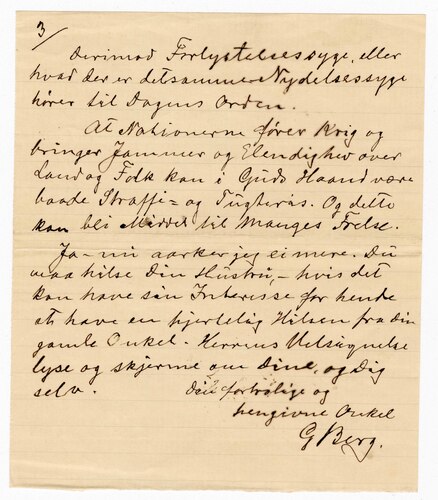 3/
derimod Forlystelsessyge, eller
hvad der er detsamme Nydelsessyge
hører til Dagens Orden.
At Nationerne fører Krig og
bringer Jammer og Elendighed over
Land og Folk kan i Guds Haand være
baade Straffe= og Tugteris. Og dette
kan bli Middel til Manges Frelse.
Ja – nu aarker jeg ei mere. Du
maa hilse Din Hustru, – hvis det
kan have sin Interisse for hende
at have en hjertelig Hilsen fra din
gamle Onkel. Herrens Velsignelse
lyse og skjerme om Dine, og Dig
selv.
Din fortrolige og
hengivne Onkel
G Berg.